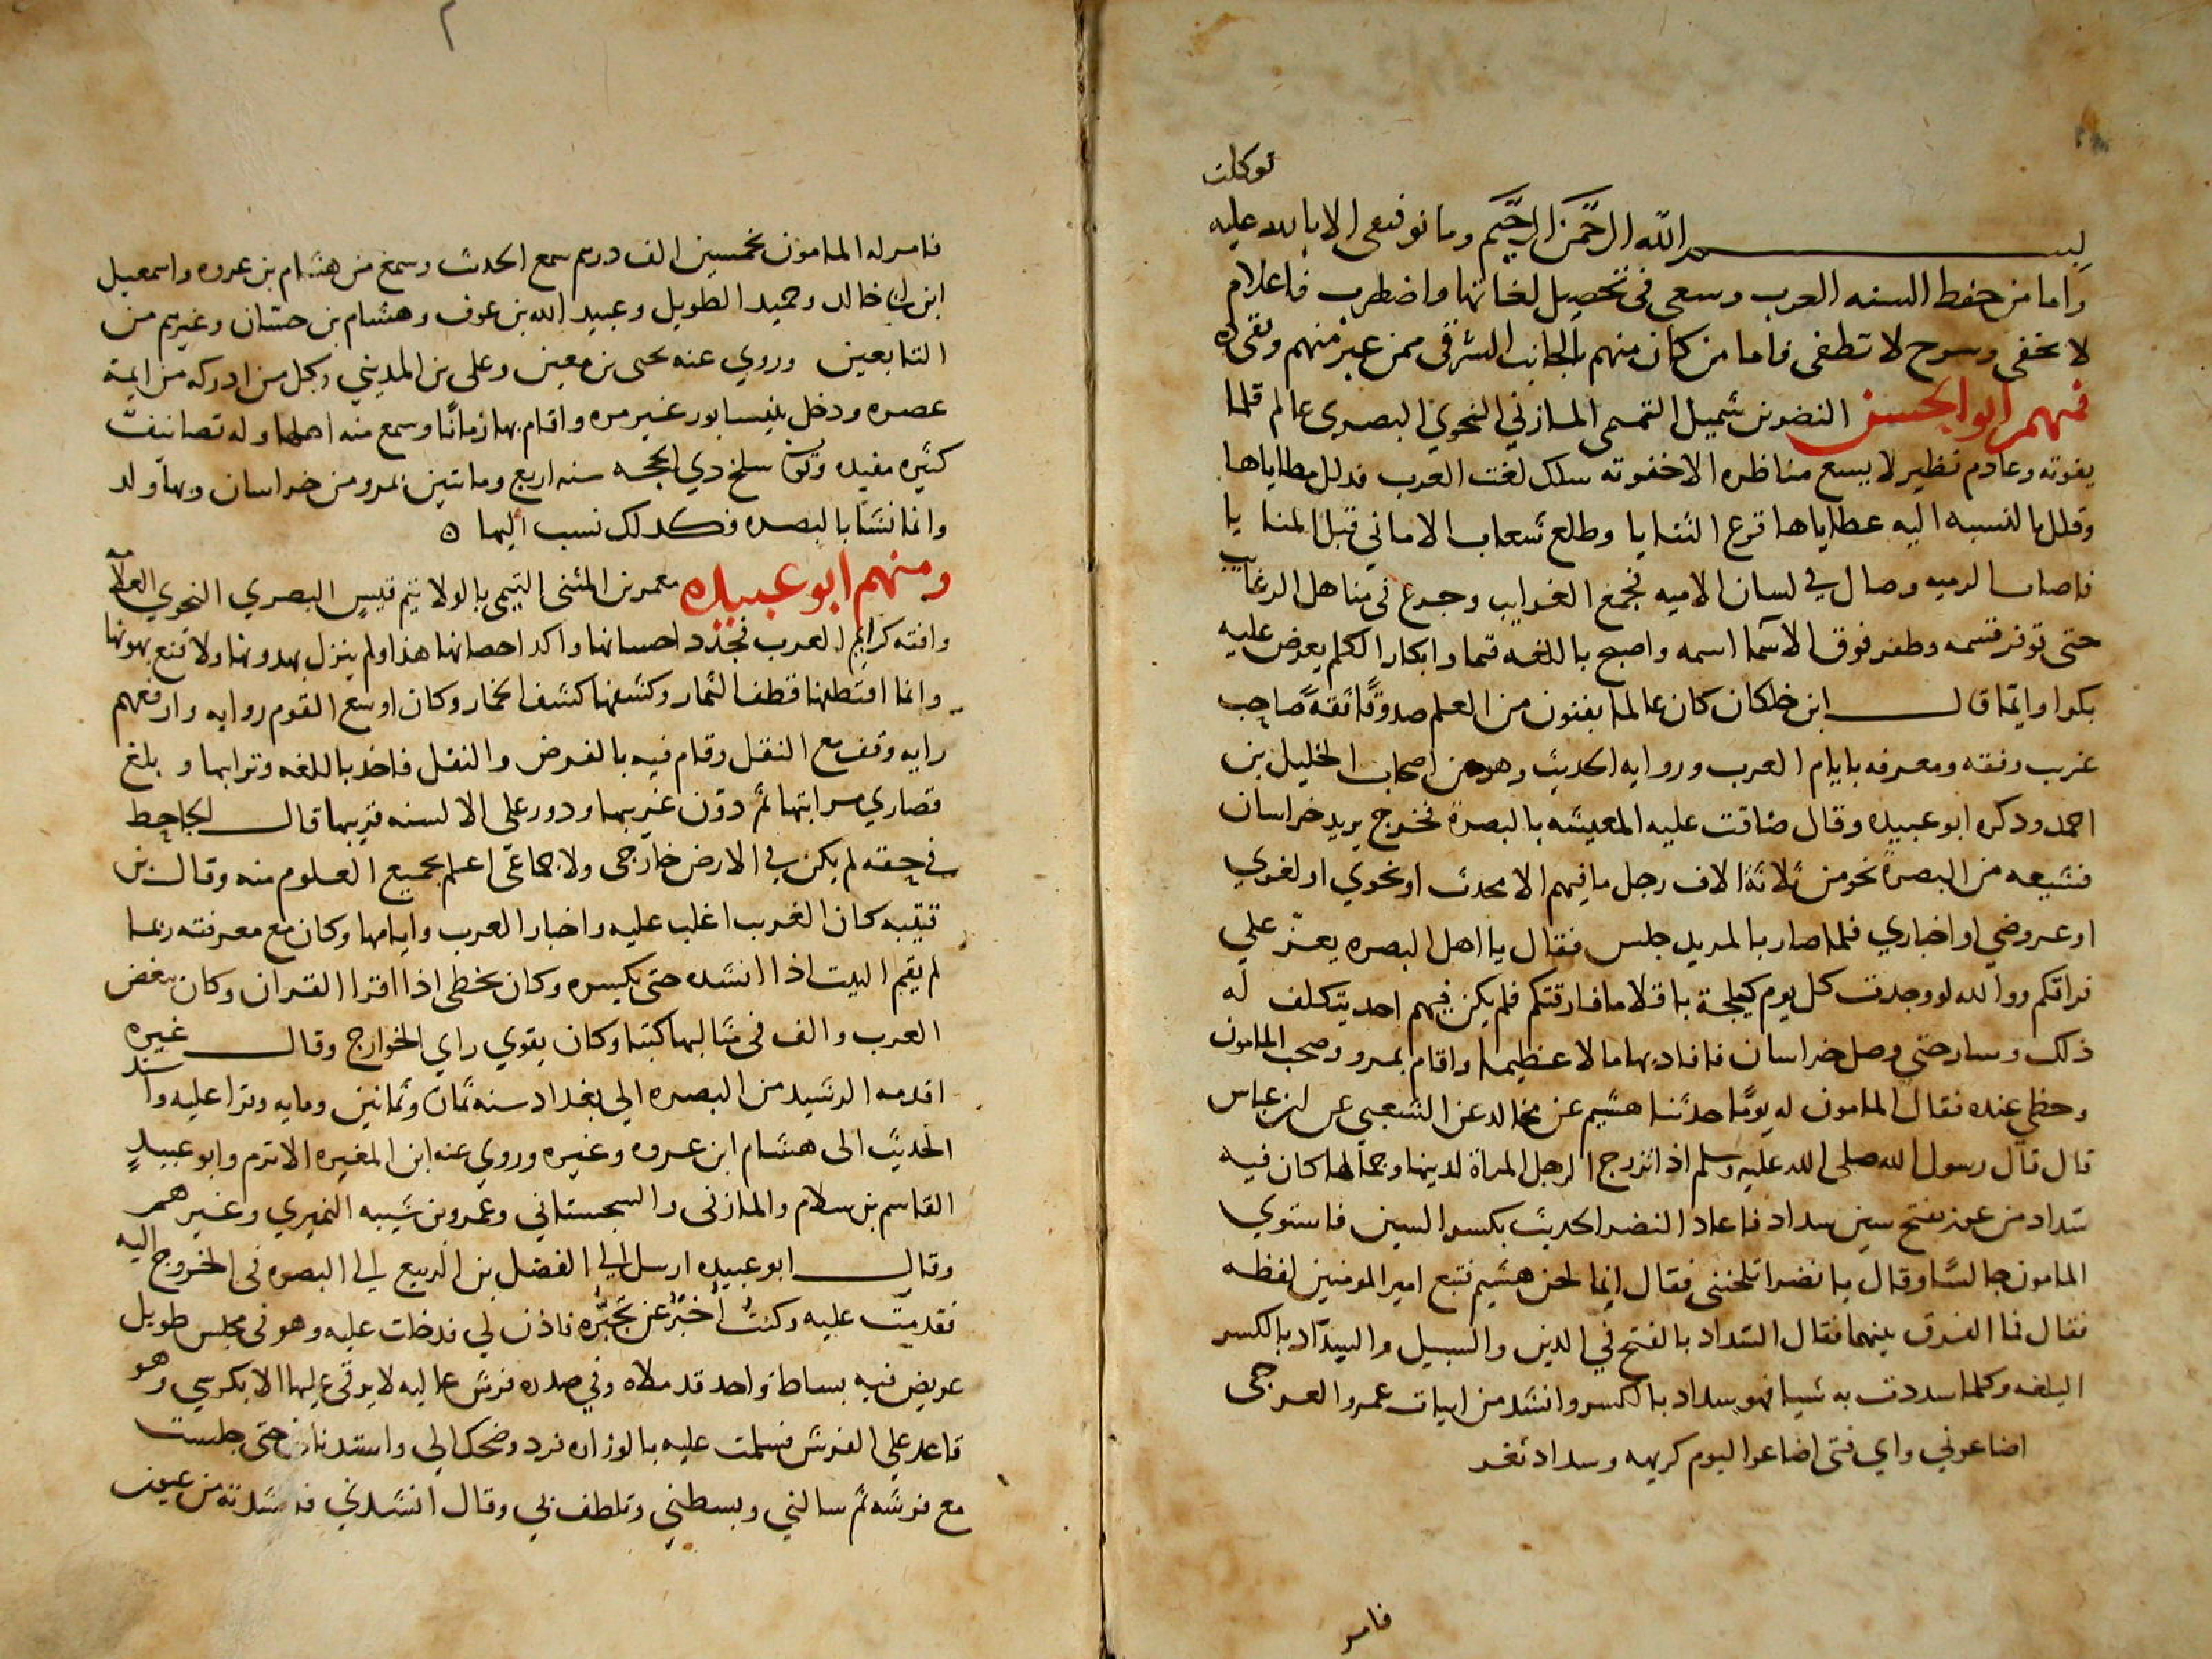 توكلت
بسم الله الرحمن الرحيم وما توفيقى الا بالله عليه
واما من حفظ السنه العرب وسعى فى تحصيل لغاتها واضطرب فاعلام
لا تخفى وسرج لا تطفى فاما من كان منهم بالجانب الشرقى ممن عبر منهم وبقى ذكره
فمنهم ابو الحسن النضر بن شميل التميمى المازني النحوي البصرى عالم قلما
يفوته وعادم نظير لا يسع مناظره الا خفوته سلك لغت العرب فدلل مطاياها
وقلل بالنسبه اليه عطاياها قرع الثنايا وطلع شعاب الاماني قبل المنايا
الرميه وصال في لسان الاميه فجمع الغرايب وجرع فى مناهل الرغايب
حتى توفر قسمه وطفر فوق الاسما اسمه واصبح باللغه قيما وابكار الكلم يعرض عليه
بكرا وايما قال ابن خلكان كان عالما بفنون من العلم صدوقا ثقة صاحب
غريب وفقه ومعرفه بايام العرب وروايه الحديث وهو من اصحاب الخليل بن
احمد ودكره ابو عبيده وقال ضاقت عليه المعيشه بالبصرة فخرج يريد خراسان
فشيعه من البصرة نحو من ثلاثة الاف رجل ما فيهم الا محدث او نحوي او لغوي
او عروضي او اخباري فلما صار بالمربد جلس فقال يا اهل البصره يعز علي
فراقكم ووالله لو وجدت كل يوم كيلجة باقلا ما فارقتكم فلم يكن فيهم احد يتكلف له
ذلك وسار حتى وصل خراسان فافاد بها مالا عظيما واقام بمرو وصحب المامون
وحظي عنده فقال المامون له يوما حدثنا هشيم عن مخالد عن الشعبي عن ابن عباس
قال قال رسول الله صلى الله عليه وسلم اذا تزوج الرجل المراة لدينها وجمالها كان فيه
سداد من عوز بفتح سين سداد فاعاد النضر الحديث بكسر السين فاستوي
المامون جالسا وقال يا نضر اتلحننى فقال انما لحن هشيم فتبع امير المومنين لفظه
فقال فما الفرق بينهما فقال السداد بالفتح في الدين والسبيل والسداد بالكسر
البلغه وكلما سددت به شيا فهو سداد بالكسر وانشد من ابيات عمرو العرجى
اضاعوني واي فتى اضاعوا ليوم كريهه وسداد ثغر
فامر
٢
فامر له المامون بخمسين الف درهم سمع الحدث وسمع من هشام بن عروه واسمعيل
ابن خالد وحميد الطويل وعبيد الله بن عوف وهشام بن حسان وغيرهم من
التابعين وروي عنه يحيى بن معين وعلى بن المديني وكل من ادركه من ايمة
عصره ودخل نيسابور غير مره واقام بها زمانا وسمع منه اهلها وله تصانيف
كثيره مفيده وتوفى سلخ دي الحجه سنه اربع وماتين بمرو من خراسان وبها ولد
وانما نشا بالبصره فكدلك نسب اليها ه
ومنهم ابو عبيده معمر بن المثنى التيمى بالولا تيم قيس البصري النحوي العلامه
وافته كرايم العرب فجدد احسانها واكد احصانها هذا ولم ينزل بهدونها ولا قنع بهونها
وانما اقتطفها قطف الثمار وكشفها كشف الخمار وكان اوسع القوم روايه وارفعهم
رايه وقف مع النقل وقام فيه بالفرض والنفل فاخذ باللغه وترابها وبلغ
قصاري مراتبها ثم دون غريبها ودور على الالسنه قريبها قال الجاحظ
في حقه لم يكن في الارض خارجى ولا جماعى اعلم بجميع العلوم منه وقال بن
قتيبه كان الغريب اغلب عليه واخبار العرب وايامها وكان مع معرفته ربما
لم يقم البيت اذا انشده حتى يكسره وكان يخطى اذا اقرا القران وكان يبغض
العرب والف فى مثالبها كتبا وكان يقوي راي الخوارج وقال غيره
اقدمه الرشيد من البصره الي بغداد سنه ثمان وثمانين ومايه وقرا عليه واسند
الحديث الى هشام ابن عروه وغيره وروي عنه ابن المغيره الاثرم وابو عبيد
القاسم بن سلام والمازنى والسجستاني وعمرو بن شيبه النميري وغيرهم
وقال ابو عبيده ارسل الي الفضل بن الربيع الي البصره فى الخروج اليه
فقدمت عليه وكنت اخبر عن تجبره فاذن لي فدخلت عليه وهو فى مجلس طويل
عريض فيه بساط واحد قد ملاه وفي صدره فرش عاليه لا يرقى عليها الا بكرسي وهو
قاعد علي الفرش فسلمت عليه بالوزاره فرد وضحك الي واستدناني حتى جلست
مع فرشه ثم سالني وبسطني وتلطف بي وقال انشدني فانشدته من عيون